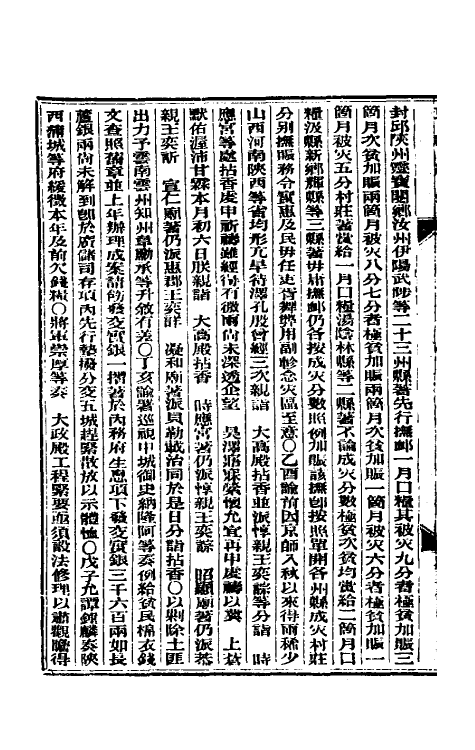 封邱陝州靈寶閿鄉汝州伊陽武陟等二十三州縣著先行撫卹一月口糧其被災九分者極貧加賑三
箇月次貧加賑兩箇月被災八分七分者極貧加賑兩箇月次貧加賑一箇月被災六分者極貧加賑一
箇月被災五分村莊著賞給一月口糧湯陰林縣等二縣著不論成災分數極貧次貧均賞給二箇月口
糧汲縣新鄉輝縣等三縣著毋庸撫卹仍各按成災分數照例加賑該撫卽按照單開各州縣成災村莊
分別撫賑務令實惠及民毋任吏胥舞弊用副軫念災區至意〇乙酉諭前因京師入秋以來得雨稀少
山西河南陝西等省均形亢旱待澤孔殷曾經三次親詣　大高殿拈香並派惇親王奕誴等分詣　時
應宮等處拈香虔申祈禱雖經得有微雨尚未深透企望　昊澤寤寐縈懷允宜再申虔禱以冀　上蒼
默佑渥沛甘霖本月初六日朕親詣　大高殿拈香　時應宮著仍派惇親王奕誴　昭顯廟著仍派恭
親王奕訢　宣仁廟著仍派惠郡王奕詳　凝和廟著派貝勒載治同於是日分詣拈香〇以剿除土匪
出力予雲南雲州知州章勵承等升敘有差〇丁亥諭著巡視中城御史納隆阿等奏例給貧民棉衣錢
文查照舊章並上年辦理成案請飭發交實銀一摺著於內務府生息項下發交實銀三千六百兩如長
蘆銀兩尚未解到卽於廣儲司存項內先行墊撥分交五城趕緊散放以示體恤〇戊子允譚鍾麟奏陝
西蒲城等府緩徵本年及前欠錢糧〇將軍崇厚等奏　大政殿工程緊要亟須設法修理以肅觀瞻得